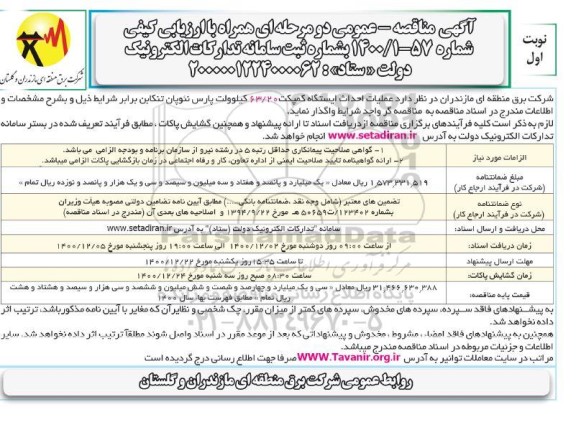 نوبت اول
آگهی مناقصه – عمومی دو مرحله ای همراه با ارزیابی کیفی
شماره ۵۷-۱۴۰۰/۱ بشماره ثبت سامانه تدارکات الکترونیک
دولت «ستاد»: ۲۰۰۰۰۰۱۲۲۴۰۰۰۰۶۲
شرکت برق منطقه ای مازندران و گلستان
شرکت برق منطقه ای مازندران در نظر دارد عملیات احداث ایستگاه کمپکت ۶۳/۲۰ کیلوولت پارس نئوپان تنکابن برابر شرایط ذیل و بشرح مشخصات و
اطلاعات مندرج در اسناد مناقصه به مناقصه گر واجد شرایط واگذار نماید.
لازم به ذکر است کلیه فرآیندهای برگزاری مناقصه از دریافت اسناد تا ارائه پیشنهاد و همچنین گشایش پاکات ، مطابق فرآیند تعریف شده در بستر سامانه
تدارکات الکترونیک دولت به آدرس www.setadiran.ir انجام خواهد شد.
الزامات مورد نیاز
۱- گواهی صلاحیت پیمانکاری حداقل رتبه ۵ در رشته نیرو از سازمان برنامه و بودجه الزامی می باشد.
۲- ارائه گواهینامه تایید صلاحیت ایمنی از اداره تعاون، کار و رفاه اجتماعی در زمان بازگشایی پاکات الزامی میباشد.
مبلغ ضمانتنامه (شرکت در فرآیند ارجاع کار)
۱,۵۷۳,۳۳۱,۵۱۹ ریال معادل « یک میلیارد و پانصد و هفتاد و سه میلیون و سیصد و سی و یک هزار و پانصد و نوزده ریال تمام »
نوع ضمانتنامه (شرکت در فرآیند ارجاع کار)
تضمین های معتبر (شامل وجه نقد ،ضمانتنامه بانکی،...) مطابق آیین نامه تضامین دولتی مصوبه هیات وزیران
بشماره ۱۲۳۴۰۲/ت۵۰۶۵۹ هـ مورخ ۱۳۹۴/۹/۲۲ و اصلاحیه های بعدی آن (مندرج در اسناد مناقصه)
محل دریافت و ارسال اسناد:
سامانه "تدارکات الکترونیک دولت (ستاد)" به آدرس www.setadiran.ir
زمان دریافت اسناد:
از ساعت ۰۹:۰۰ روز دوشنبه مورخ ۱۴۰۰/۱۲/۰۲ الی ساعت ۱۹:۰۰ روز پنجشنبه مورخ ۱۴۰۰/۱۲/۰۵
مهلت ارسال پیشنهاد
تا ساعت ۱۵:۳۵ روز یکشنبه مورخ ۱۴۰۰/۱۲/۲۲
زمان گشایش پاکات:
ساعت ۰۸:۳۰ صبح روز سه شنبه مورخ ۱۴۰۰/۱۲/۲۴
قیمت پایه مناقصه:
۳۱,۴۶۶,۶۳۰,۳۸۸ ریال معادل « سی و یک میلیارد و چهارصد و شصت و شش میلیون و ششصد و سی هزار و سیصد و هشتاد و هشت
ریال تمام » مطابق فهرست بهاء سال ۱۴۰۰
به پیشنهادهای فاقد سپرده، سپرده های مخدوش، سپرده های کمتر از میزان مقرر، چک شخصی و نظایر آن که مغایر با آیین نامه مذکور باشد، ترتیب اثر
داده نخواهد شد.
همچنین به پیشنهادهای فاقد امضاء ، مشروط ، مخدوش و پیشنهاداتی که بعد از موعد مقرر در اسناد واصل شوند مطلقاً ترتیب اثر داده نخواهد شد. سایر
اطلاعات و جزئیات مربوطه در اسناد مناقصه مندرج میباشد.
مراتب در سایت معاملات توانیر به آدرس WWW.Tavanir.org.ir صرفا جهت اطلاع رسانی درج گردیده است
روابط عمومی شرکت برق منطقه ای مازندران و گلستان
ParsNamadData
۰۲۱-۸۸۳۴۹۶۷۰-۵